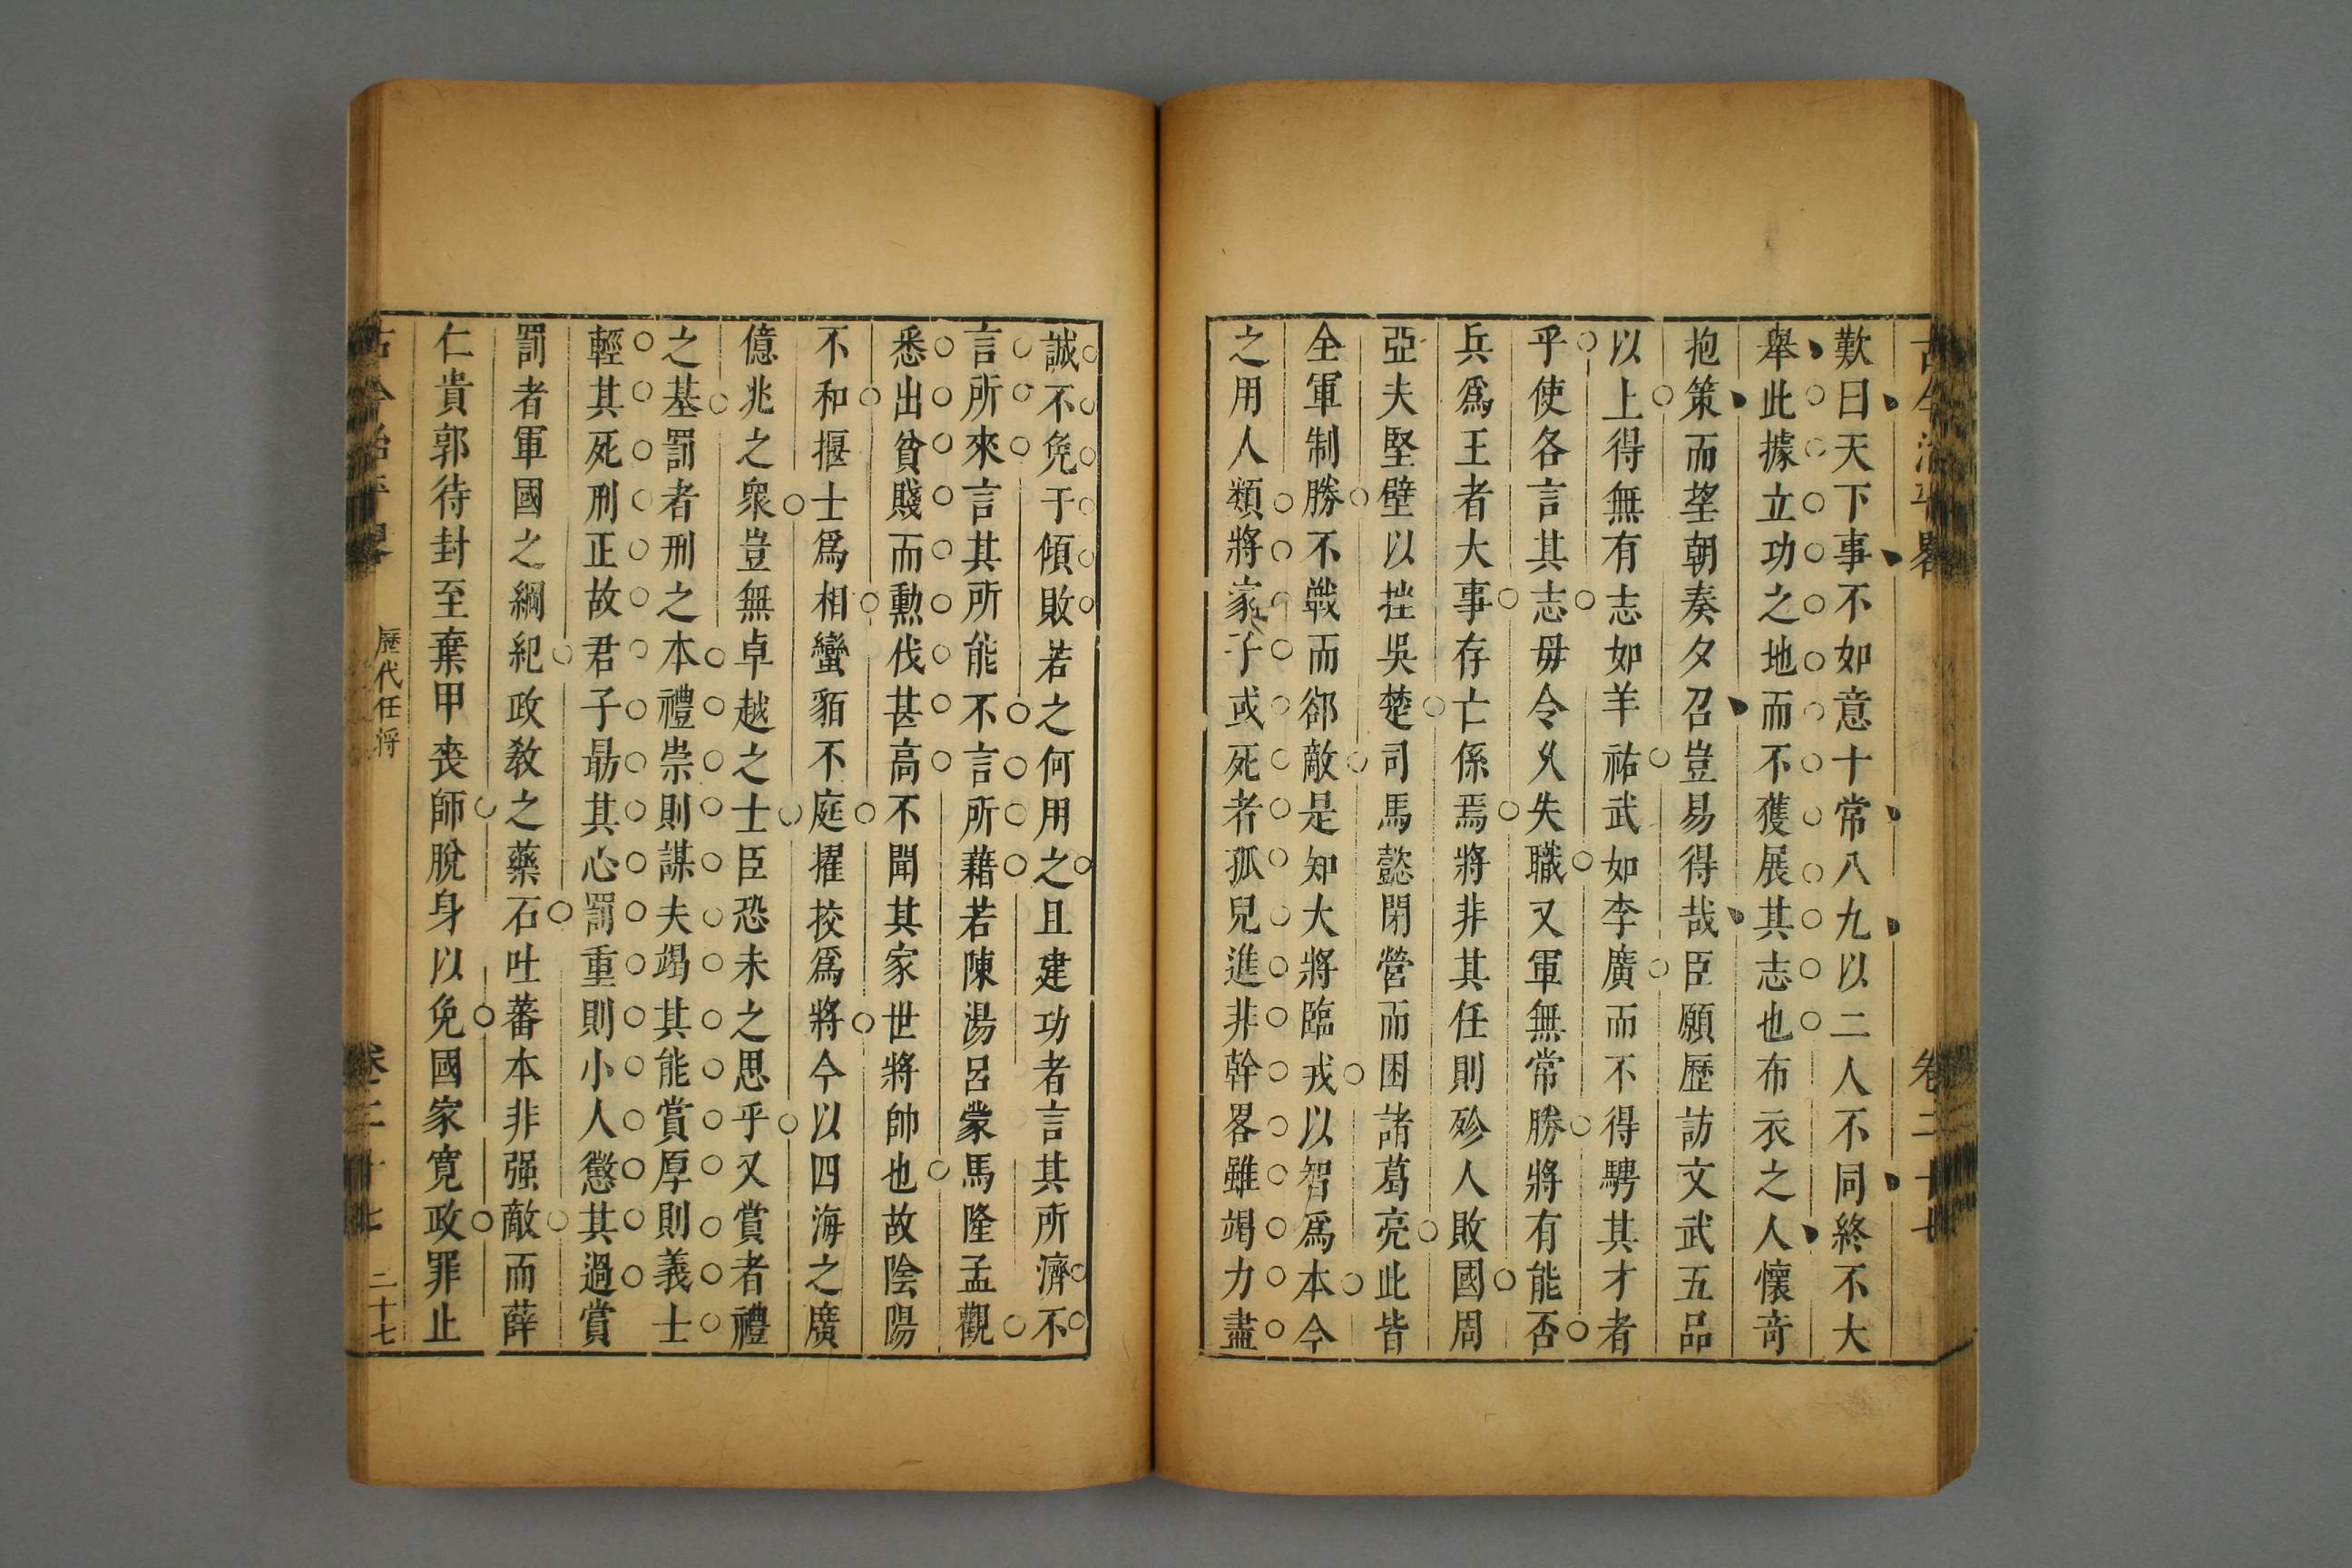 古今治平畧 卷二十七
歎曰天下事不如意十常八九以二人不同終不大
舉此據立功之地而不獲展其志也布衣之人懷竒
抱策而望朝奏夕召豈易得哉臣願歷訪文武五品
以上得無有志如羊祜武如李廣而不得騁其才者
乎使各言其志毋令乆失職又軍無常勝將有能否
兵爲王者大事存亡係焉將非其任則殄人敗國周
亞夫堅壁以挫吳楚司馬懿閉營而困諸葛亮此皆
全軍制勝不戰而郤敵是知大將臨戎以智爲本今
之用人類將家子或死者孤兒進非幹畧雖竭力盡
誠不免于傾敗若之何用之且建功者言其所濟不
言所來言其所能不言所藉若陳湯呂蒙馬隆孟觀
悉出貧賤而勲伐甚高不聞其家世將帥也故陰陽
不和揠士爲相蠻貊不庭擢挍爲將今以四海之廣
億兆之衆豈無卓越之士臣恐未之思乎又賞者禮
之基罰者刑之本禮崇則謀夫竭其能賞厚則義士
輕其死刑正故君子朂其心罰重則小人懲其過賞
罰者軍國之綱紀政敎之藥石吐蕃本非强敵而薛
仁貴郭待封至棄甲喪師脫身以免國家寛政罪止
古今治平畧 歷代任将 卷二十七 二十七